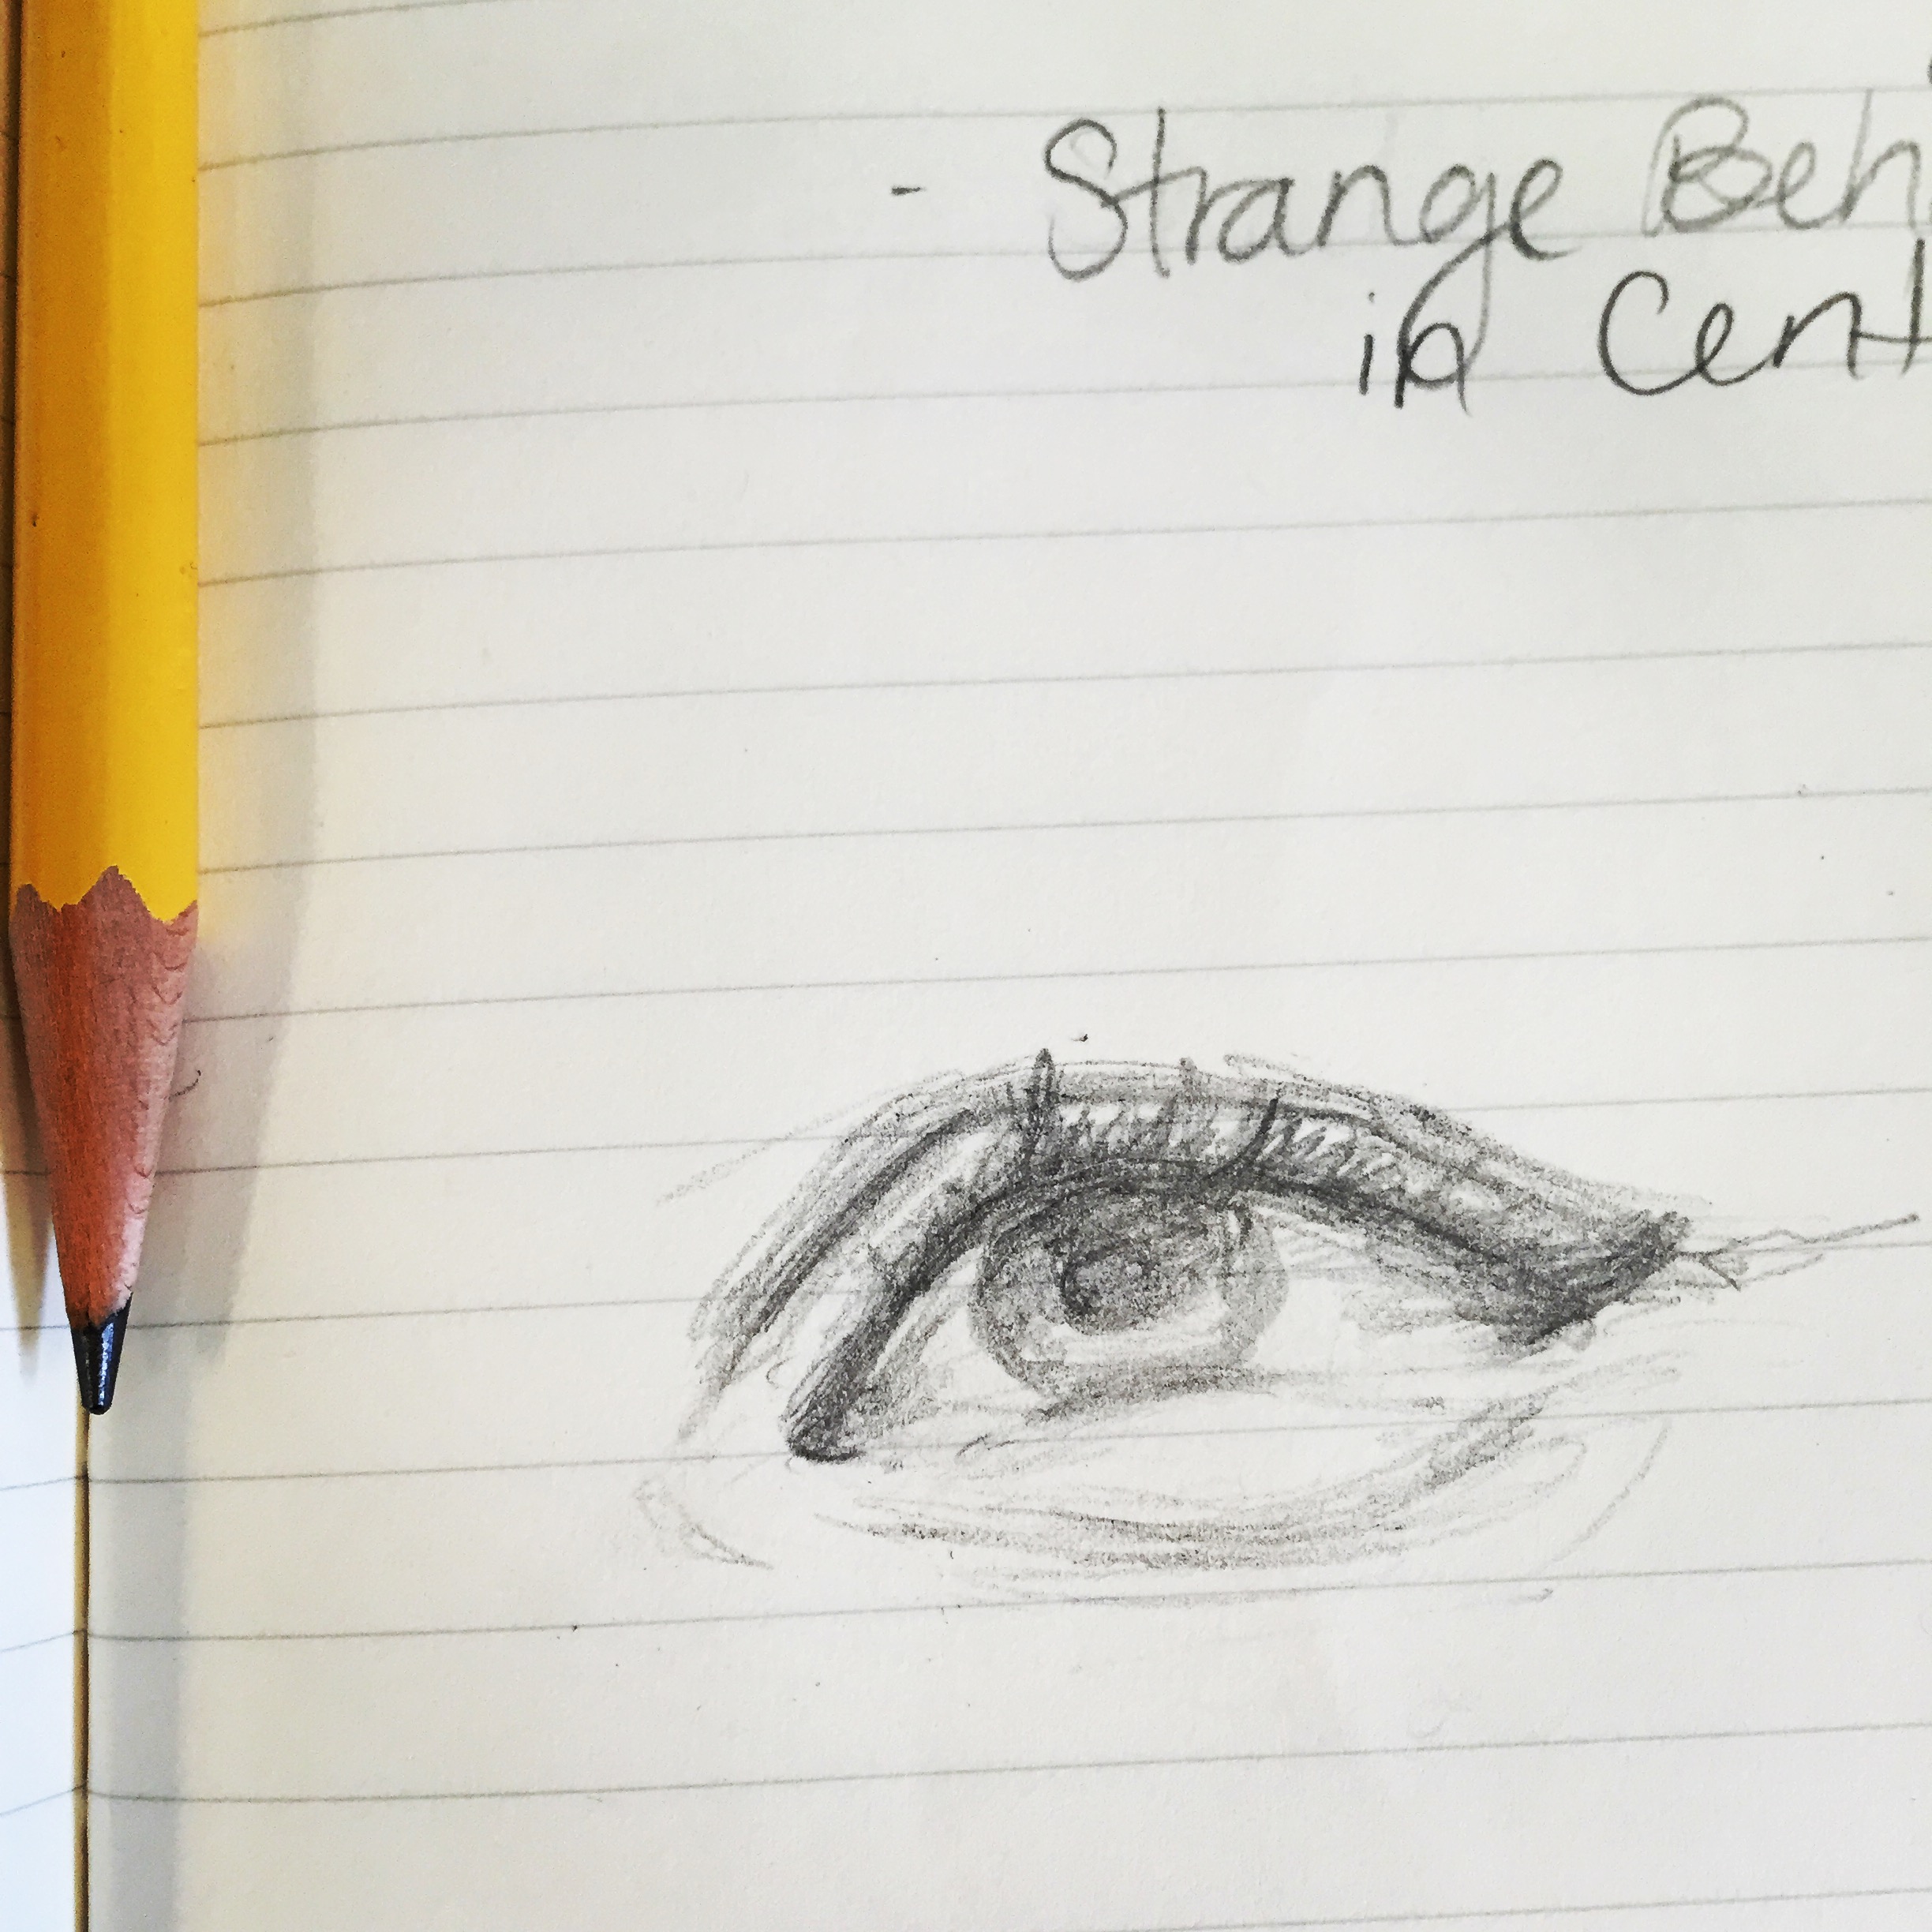 - Strange Beh
in Cent